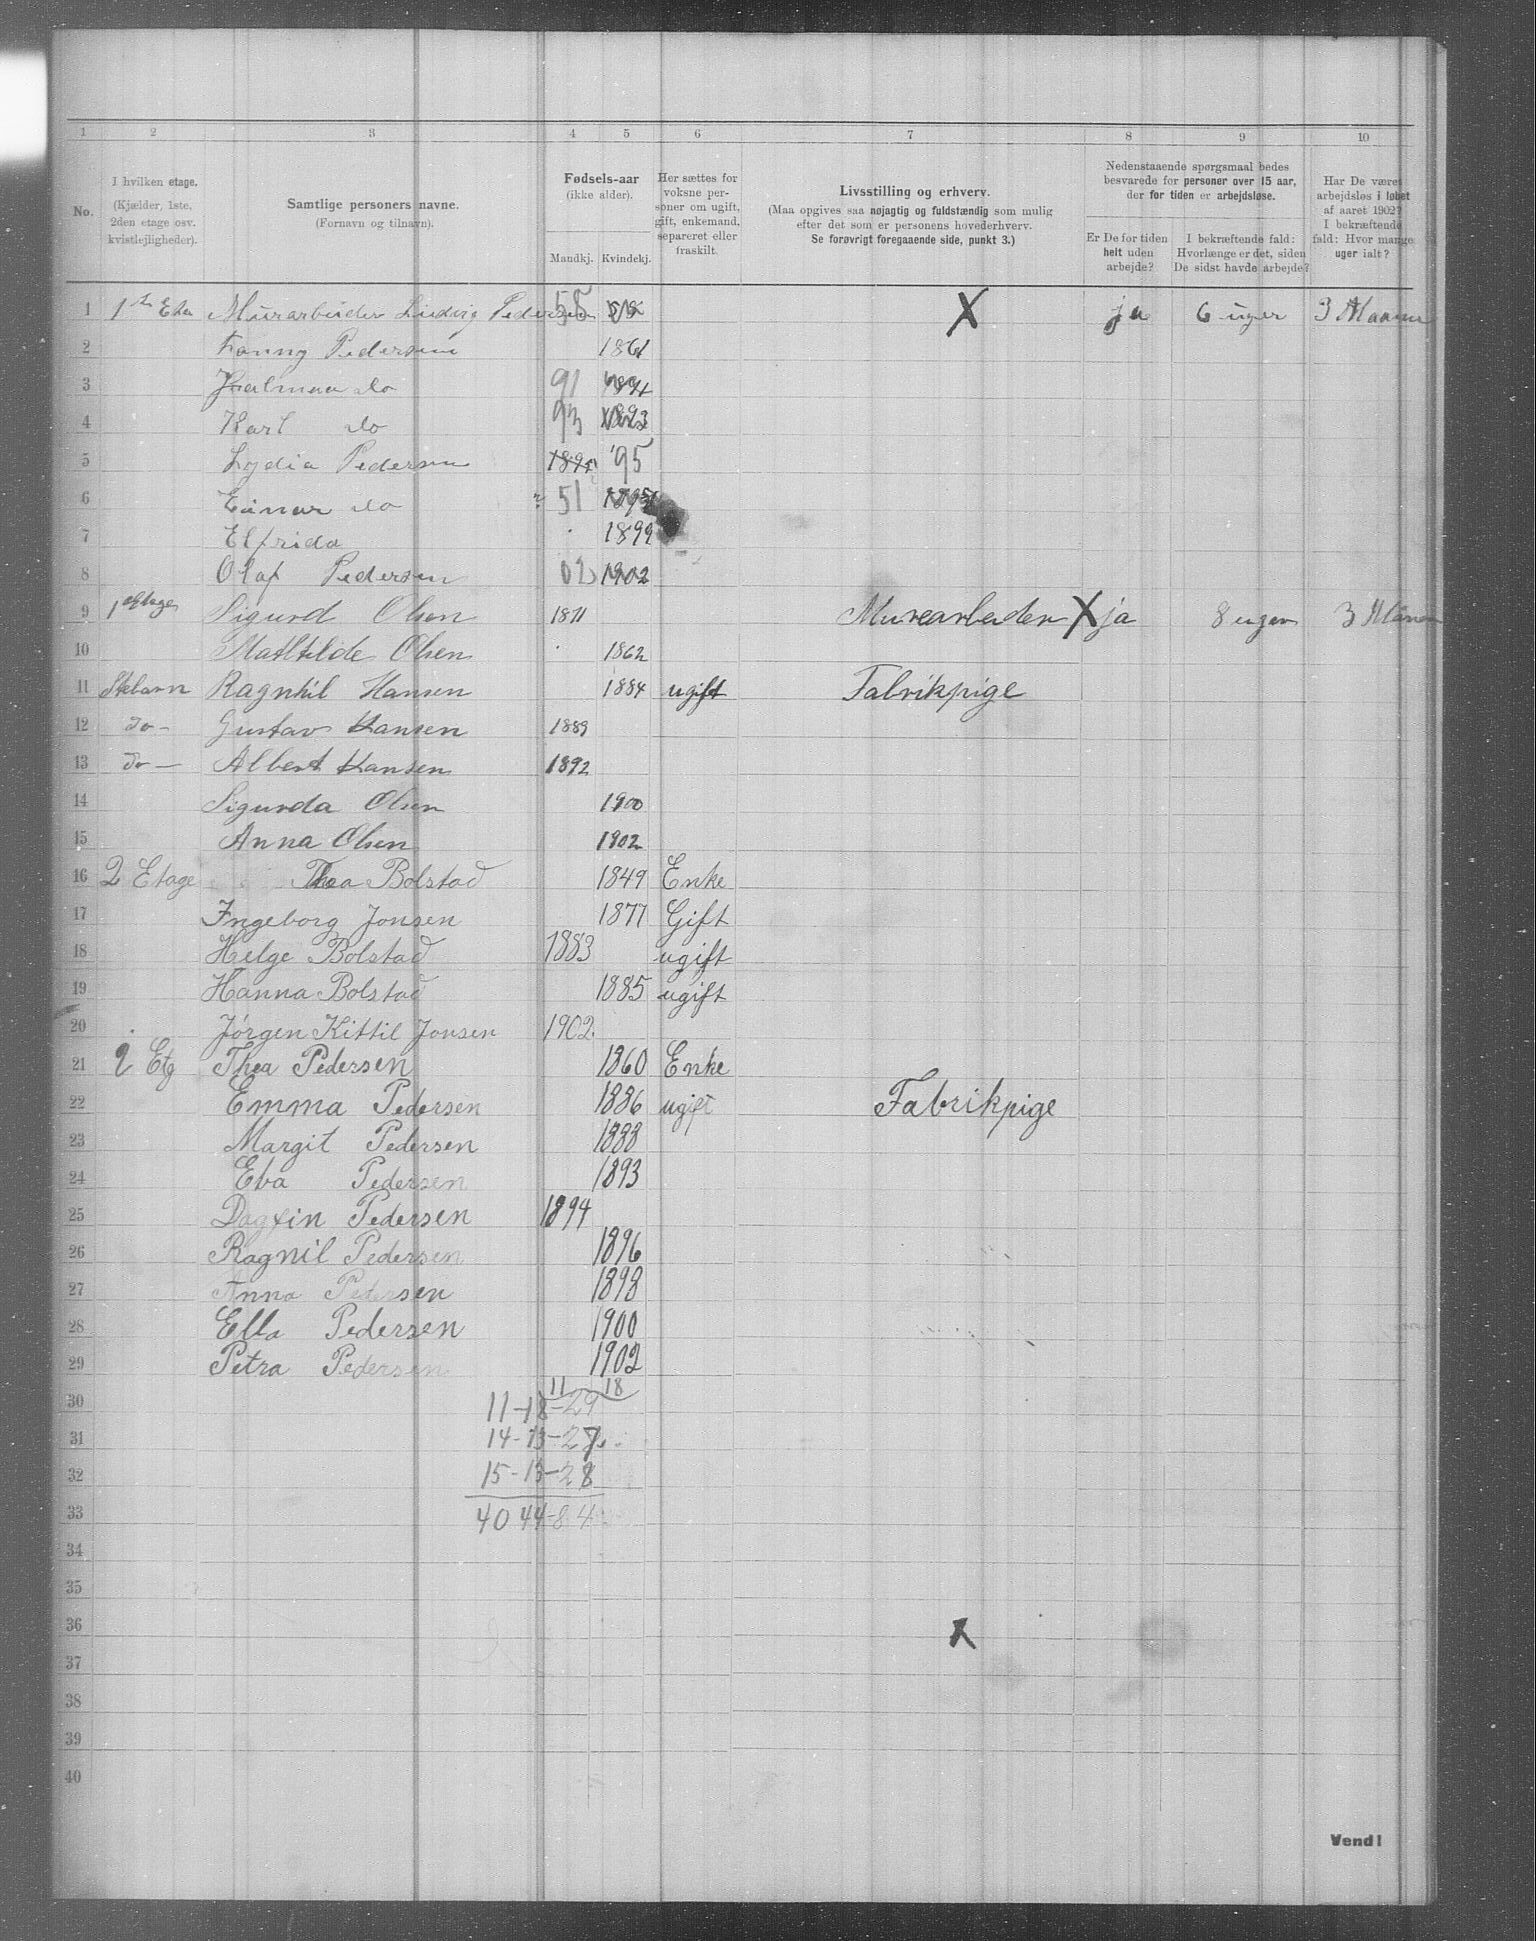 1 2 3 4 5 6 7 8 9 10
No.
I hvilken etage.
(Kjælder, 1ste,
2den etage osv.
kvistlejligheder).
Samtlige personers navne.
(Fornavn og tilnavn).
Fødsels-aar
(ikke alder).
Mandkj. Kvindekj.
Her sættes for
voksne per-
soner om ugift,
gift, enkemand,
separeret eller
fraskilt.
Livsstilling og erhverv.
(Maa opgives saa nøjagtig og fuldstændig som mulig
efter det som er personens hovederhverv.
Se forøvrigt foregaaende side, punkt 3.)
Nedenstaaende spørgsmaal bedes
besvarede for personer over 15 aar,
der for tiden er arbejdsløse.
Er De for tiden
helt uden
arbejde?
I bekræftende fald:
Hvorlænge er det, siden
De sidst havde arbejde?
Har De været
arbejdsløs i løbet
af aaret 1902?
I bekræftende
fald: Hvor mange
uger ialt?
1 Murarbeider Ludvig Pedersen 55 X ja 6 uger 3
2 Fanny Pedersen 1861
3 do 91
4 Karl do 93 1893
5 Lydia Pedersen '95
6 Einar do 51
7 Elfrida 1899
8 Olaf Pedersen 02 1902
9 1 etage Sigurd Olsen 1871 Murearbeder X ja 8 uger 3
10 Mathilde Olsen 1862
11 Stebarn Ragnhil Hansen 1884 ugift Fabrikpige
12 do - Gustav Hansen 1889
13 do — Albert Hansen 1892
14 Sigurda Olsen 1900
15 Anna Olsen 1902
16 2 Etage Thea Bolstad 1849 Enke
17 Ingeborg Jonsen 1877 Gift
18 Helge Bolstad 1883 ugift
19 Hanna Bolstad 1885 ugift
20 Jörgen Kittil Jonsen 1902
21 2 Etg Thea Pedersen 1860 Enke
22 Emma Pedersen 1886 ugift Fabrikpige
23 Margit Pedersen 1888
24 Eva Pedersen 1893
25 Dagfin Pedersen 1894
26 Ragnil Pedersen 1896
27 Anna Pedersen 1898
28 Ella Pedersen 1900
29 Petra Pedersen 1902
11 18
30 11-18-29
31 14-13-27
32 15-13-28
33 40 44-84
34
35
36 X
37
38
39
40
Vend!